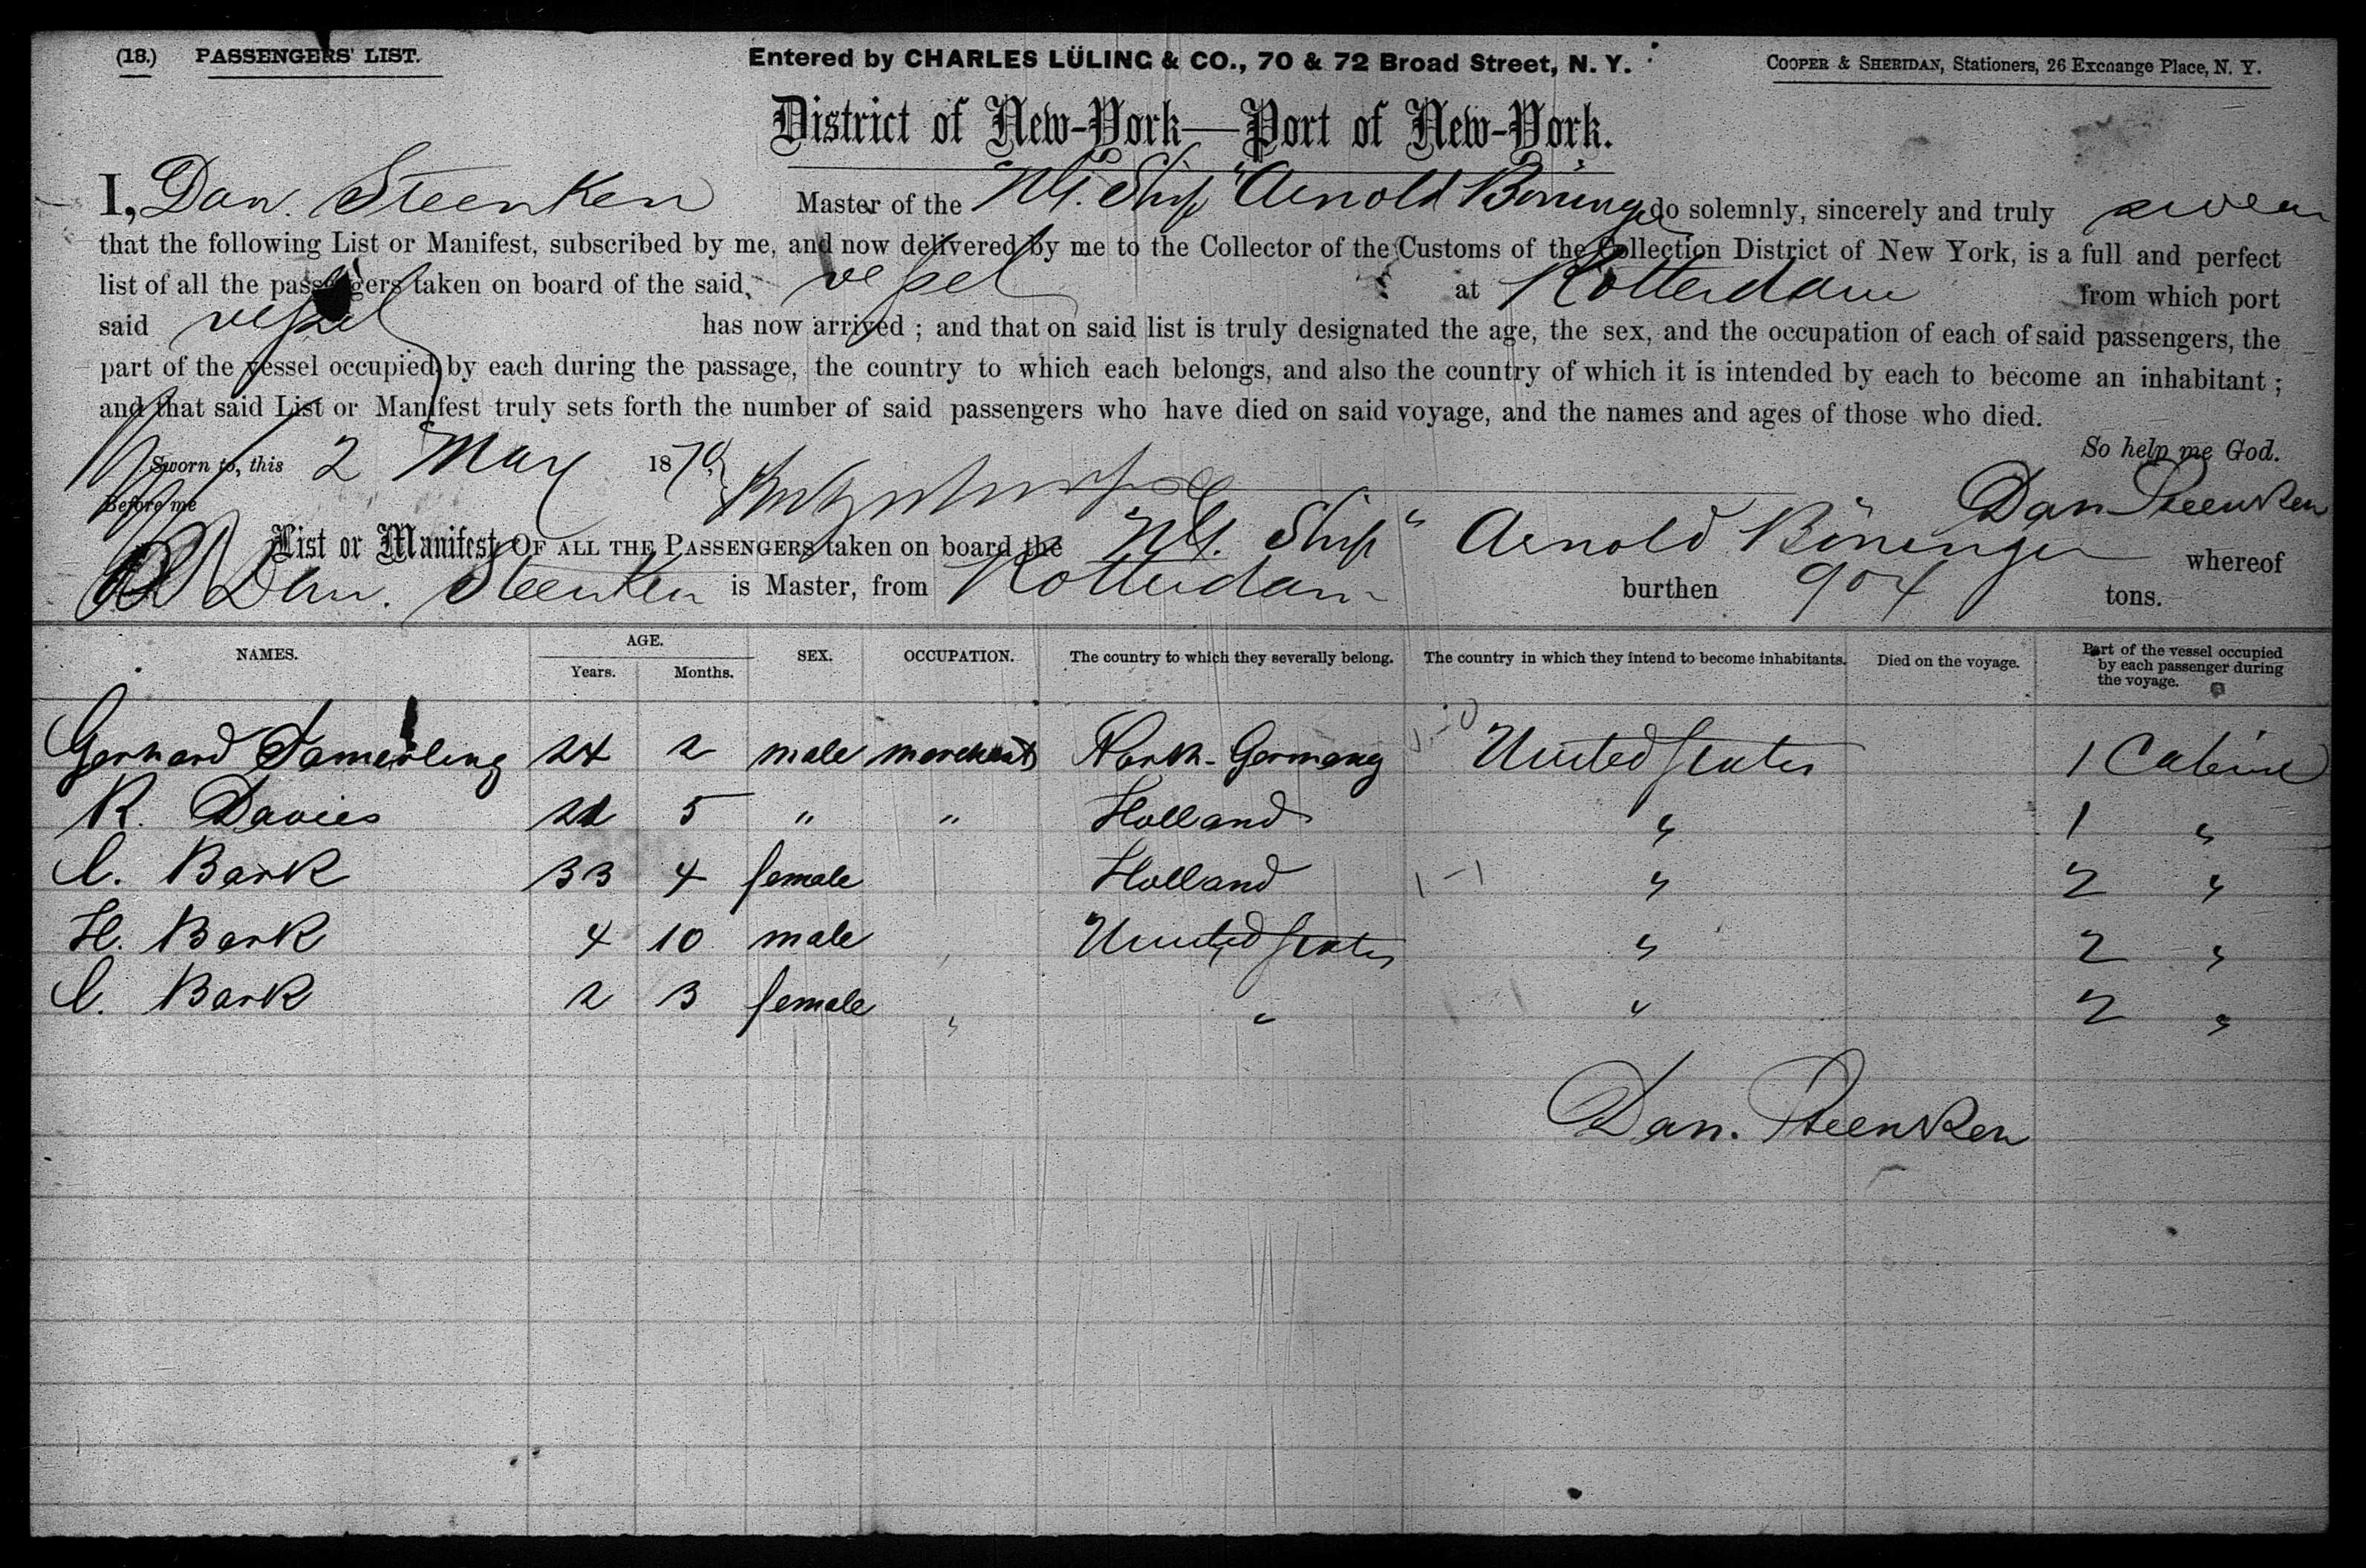 (18.) PASSENGERS' LIST. Entered by CHARLES LÜLING & CO., 70 & 72 Broad Street, N. Y. COOPER & SHERIDAN, Stationers, 26 Exchange Place, N. Y.
District of New-York—Port of New-York.
I, Dan. Steenken Master of the Ship "Arnold Böninger do solemnly, sincerely and truly swear
that the following List or Manifest, subscribed by me, and now delivered by me to the Collector of the Customs of the Collection District of New York, is a full and perfect
list of all the passengers taken on board of the said, vessel at Rotterdam from which port
said vessel has now arrived ; and that on said list is truly designated the age, the sex, and the occupation of each of said passengers, the
part of the vessel occupied by each during the passage, the country to which each belongs, and also the country of which it is intended by each to become an inhabitant ;
and that said List or Manifest truly sets forth the number of said passengers who have died on said voyage, and the names and ages of those who died.
So help me God.
Sworn to, this 2 May 1870
Before me Dan Steenken
List or Manifest OF ALL THE PASSENGERS taken on board the Ship " Arnold Böninger whereof
Dan. Steenken is Master, from Rotterdam burthen 904 tons.
NAMES. AGE. Years. Months. SEX. OCCUPATION. The country to which they severally belong. The country in which they intend to become inhabitants. Died on the voyage. Part of the vessel occupied by each passenger during the voyage.
Gerhard 24 2 male merchant North-Germany United States 1 Cabine
R. Davies 5 " " Holland " 1 "
C. Bark 33 4 female Holland 1-1 " 2 "
H. Bark 4 10 male United States " 2 "
C. Bark 2 3 female " " " 2 "
Dan. Steenken